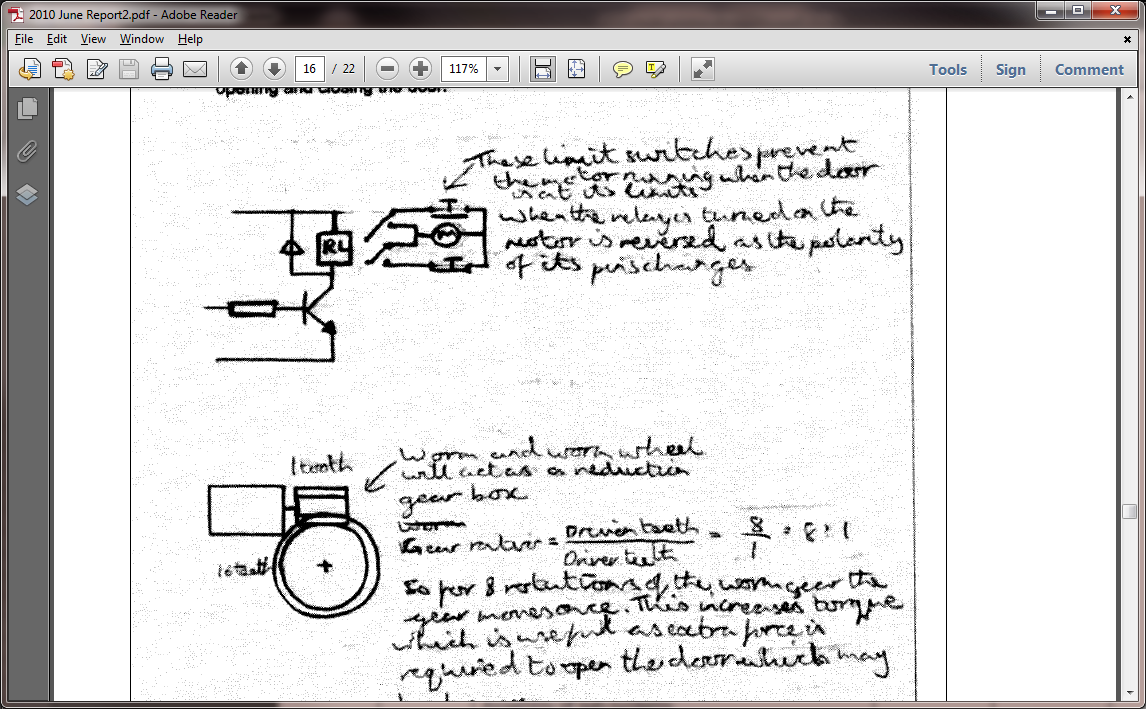 2010 June Report2.pdf - Adobe Reader
File Edit View Window Help
16 / 22 117% Tools Sign Comment
opening and closing the door.
These limit switches prevent
the motor running when the door
is at its limits
When the relay is turned on the
motor is reversed as the polarity
of its pins changes
RL
M
Worm and worm wheel
will act as a reduction
gear box
1 tooth
Gear = Driven teeth / Driver teeth = 8/1 = 8:1
teeth
So for 8 rotations of the worm gear the
gear moves once. This increases torque
which is useful as extra force is
required to open the door which may